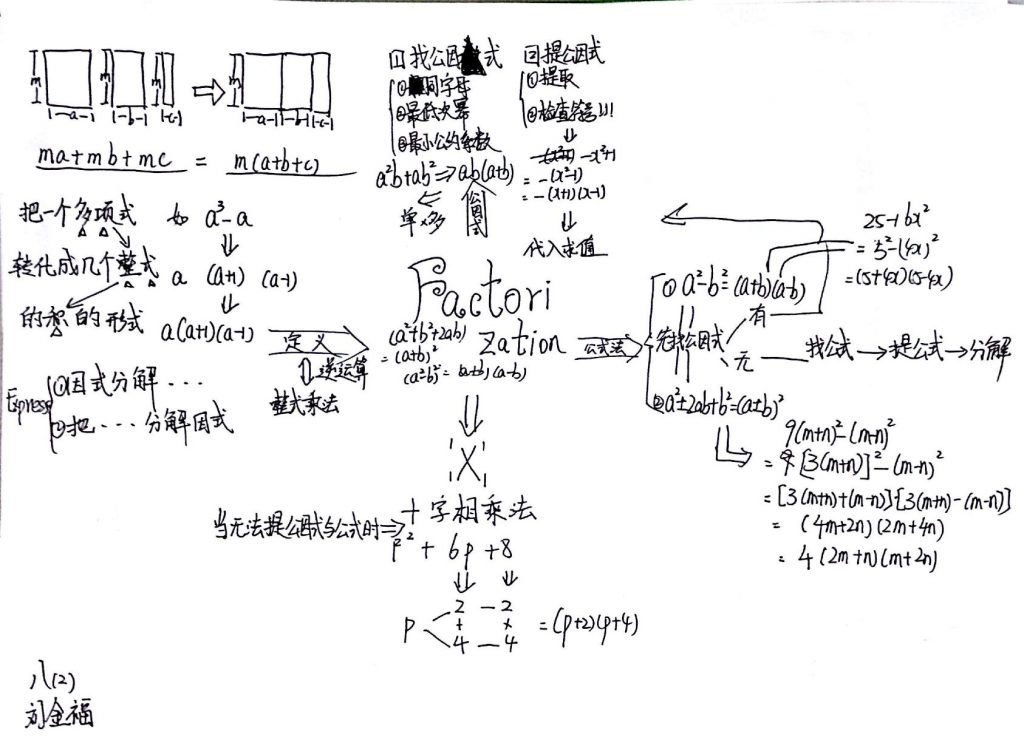 m m m m
a b c a b c
ma+mb+mc = m(a+b+c)
把一个多项式 如 a³-a
转化成几个整式 a (a+1) (a-1)
的积的形式 a(a+1)(a-1)
Express
①因式分解...
②把...分解因式
1 找公因式
①同字母
②最低次幂
③最小公约系数
a²b+ab²⇒ab(a+b)
单×多 公因式
2 提公因式
①提取
②检查符号!!!
-x²+1
=-(x²-1)
=-(x+1)(x-1)
代入求值
Factori
zation
定义
逆运算
整式乘法
(a²+b²+2ab)
=(a+b)²
(a²-b²)=(a+b)(a-b)
公式法
①a²-b²=(a+b)(a-b)
先找公因式
有
无 找公式→提公式→分解
②a²±2ab+b²=(a±b)²
25-16x²
=5²-(4x)²
=(5+4x)(5-4x)
9(m+n)²-(m-n)²
=[3(m+n)]²-(m-n)²
=[3(m+n)+(m-n)][3(m+n)-(m-n)]
=(4m+2n)(2m+4n)
=4(2m+n)(m+2n)
"X"
十字相乘法
当无法提公因式与公式时⇒
p²+6p+8
2 — 2
p + × =(p+2)(p+4)
4 — 4
八(2)
刘金福